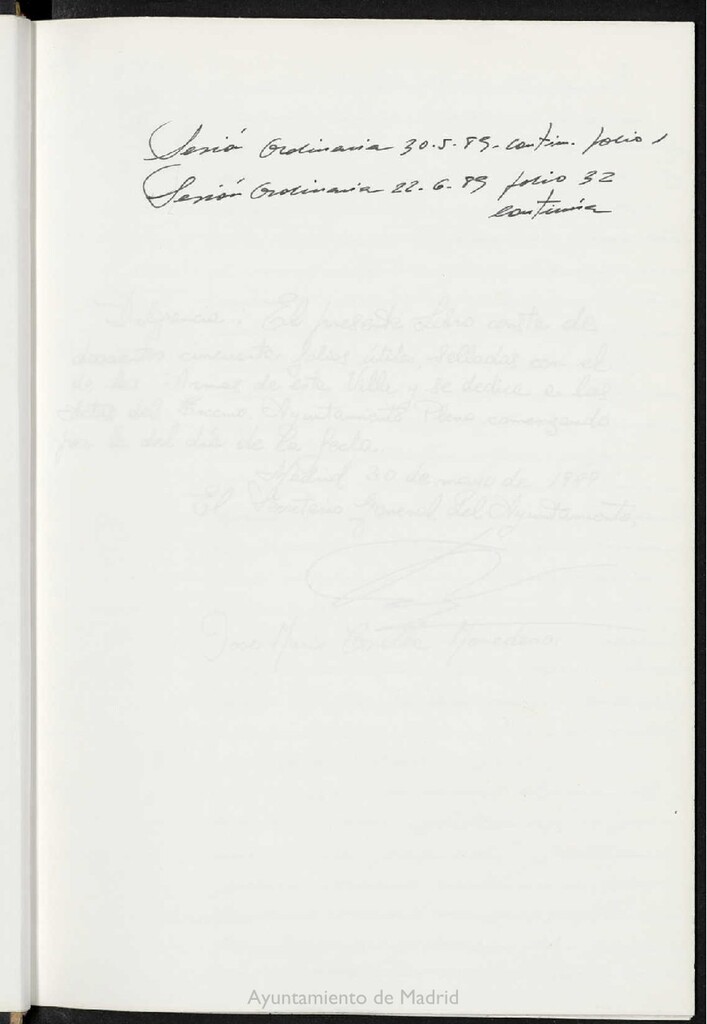 Sesión Ordinaria 30-5-89- contin. folio 1
Sesión Ordinaria 22-6-89 folio 32
continúa
El presente Libro consta de
cincuenta folios sellados con el
de las Armas de esta Villa y se dedica a las
Actas del Excmo Ayuntamiento Pleno comenzando
por la del día de la fecha.
Madrid 30 de mayo de
El Secretario General del Ayuntamiento,
Ayuntamiento de Madrid